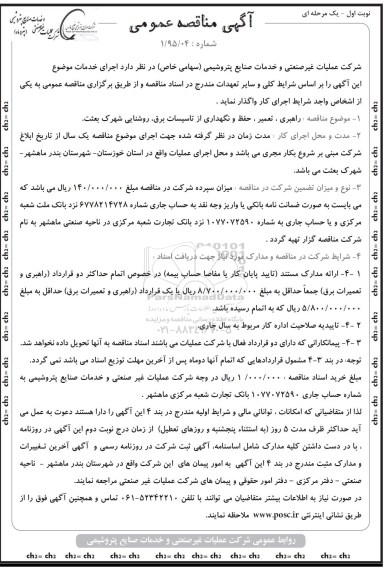 نوبت اول - یک مرحله ای
آگهی مناقصه عمومی
شماره : ۱/۹۵/۰۴
شرکت عملیات غیرصنعتی و خدمات صنایع پتروشیمی (سهامی خاص) در نظر دارد اجرای خدمات موضوع
این آگهی را بر اساس شرایط کلی و سایر تعهدات مندرج در اسناد مناقصه و از طریق برگزاری مناقصه عمومی به یکی
از اشخاص واجد شرایط اجرای کار واگذار نماید .
۱- موضوع مناقصه : راهبری ، تعمیر ، حفظ و نگهداری از تاسیسات برق، روشنایی شهرک بعثت.
۲- مدت و محل اجرای کار : مدت زمان در نظر گرفته شده جهت اجرای موضوع مناقصه یک سال از تاریخ ابلاغ
شرکت مبنی بر شروع بکار مجری می باشد و محل اجرای عملیات واقع در استان خوزستان- شهرستان بندر ماهشهر-
شهرک بعثت می باشد.
۳- نوع و میزان تضمین شرکت در مناقصه : میزان سپرده شرکت در مناقصه مبلغ ۱۴۰/۰۰۰/۰۰۰ ریال می باشد که
می بایست به صورت ضمانت نامه بانکی یا واریز وجه نقد به حساب جاری شماره ۶۷۷۸۲۱۴۷۲۸ نزد بانک ملت شعبه
مرکزی و یا حساب جاری به شماره ۱۰۷۷۰۷۲۵۹۰ نزد بانک تجارت شعبه مرکزی در ناحیه صنعتی ماهشهر به نام
شرکت مناقصه گزار تهیه گردد .
۴- شرایط شرکت در مناقصه و مدارک مورد نیاز جهت دریافت اسناد :
۱-۴- ارائه مدارک مستند (تایید پایان کار یا مفاصا حساب بیمه) در خصوص اتمام حداکثر دو قرارداد (راهبری و
تعمیرات برق) جمعاً حداقل به مبلغ ۸/۷۰۰/۰۰۰/۰۰۰ ریال یا یک قرارداد (راهبری و تعمیرات برق) حداقل به مبلغ
۵/۸۰۰/۰۰۰/۰۰۰ ریال که به اتمام رسیده باشد.
۲-۴- تاییدیه صلاحیت اداره کار مربوط به سال جاری.
۳-۴- پیمانکارانی که دارای دو قرارداد فعال با شرکت عملیات می باشند اسناد مناقصه به آنها تحویل داده نخواهد شد.
توجه: در بند ۳-۴ مشمول قراردادهایی که اتمام آنها دوماه پس از آخرین مهلت توزیع اسناد می باشد نمی گردد.
مبلغ خرید اسناد مناقصه : ۱/۰۰۰/۰۰۰ ریال در وجه شرکت عملیات غیر صنعتی و خدمات صنایع پتروشیمی به
شماره حساب جاری ۱۰۷۷۰۷۲۵۹۰ بانک تجارت شعبه مرکزی ماهشهر .
لذا از متقاضیانی که امکانات ، توانائی مالی و شرایط اولیه مندرج در بند ۴ این آگهی را دارا هستند دعوت به عمل می
آید حداکثر ظرف مدت ۵ روز (به استثناء پنجشنبه و روزهای تعطیل) از زمان درج نوبت دوم این آگهی در روزنامه
، با در دست داشتن کلیه مدارک شامل اساسنامه، آگهی ثبت شرکت در روزنامه رسمی و آگهی آخرین تغییرات
و مدارک مثبت مندرج در بند ۴ این آگهی به امور پیمان های این شرکت واقع در شهرستان بندر ماهشهر - ناحیه
صنعتی - دفتر مرکزی - دفتر امور حقوقی و پیمان های شرکت عملیات غیر صنعتی مراجعه نمایند.
در صورت نیاز به اطلاعات بیشتر متقاضیان می توانند با تلفن ۵۲۳۴۲۲۱۰-۰۶۱ تماس و همچنین آگهی فوق را از
طریق نشانی اینترنتی www.posc.ir ملاحظه نمایند.
روابط عمومی شرکت عملیات غیرصنعتی و خدمات صنایع پتروشیمی